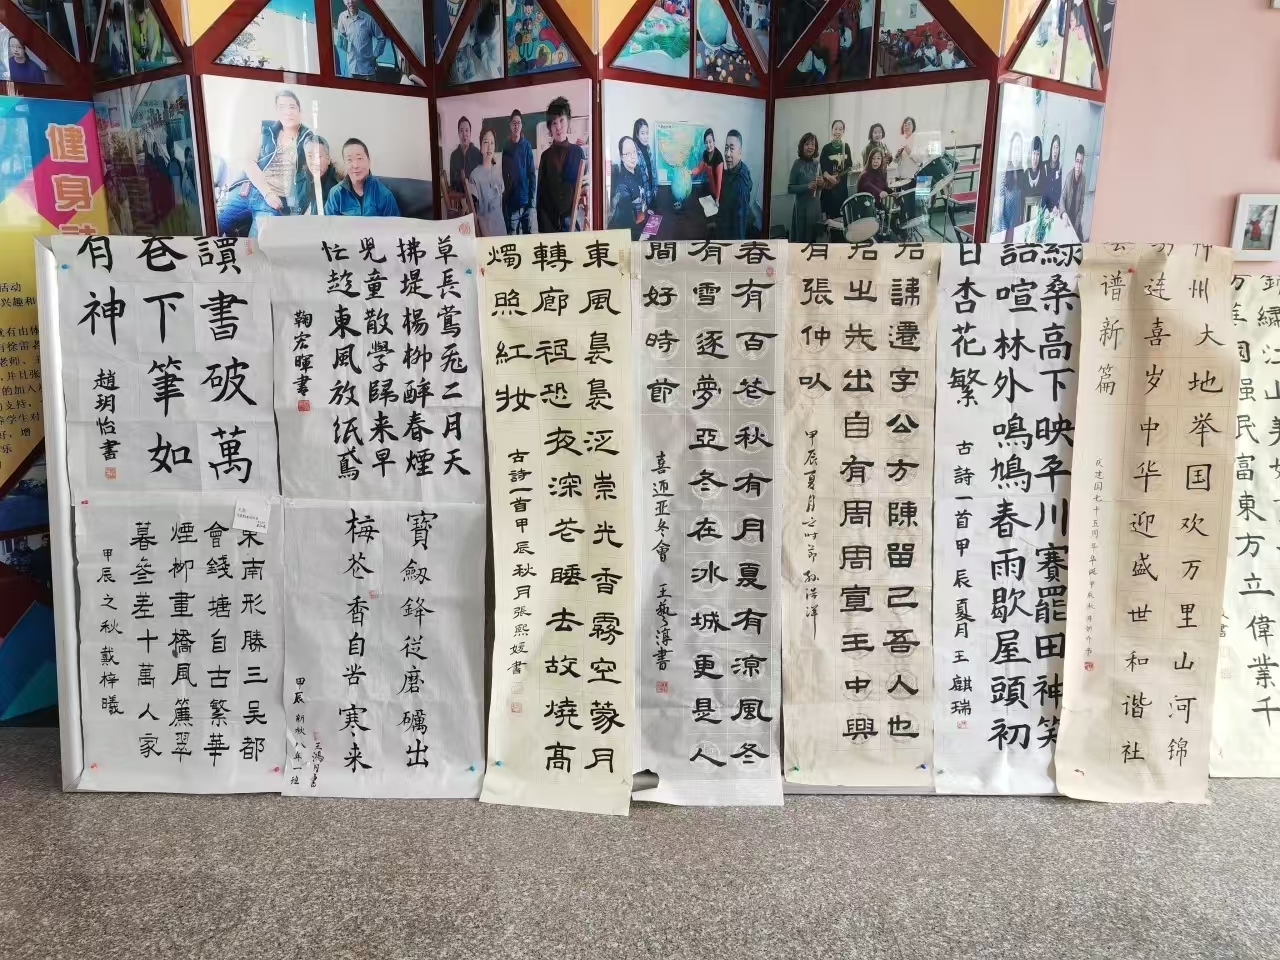 健身
活动
讀書破萬
卷下筆如
有神
趙玥怡書
東南形勝三吴都
會錢塘自古繁華
煙柳畫橋風簾翠
幕參差十萬人家
甲辰之秋戴梓曦
草長鶯飛二月天
拂堤楊柳醉春煙
兒童散學歸来早
忙趁東風放紙鳶
鞠宏暉書
寶劍鋒從磨礪出
梅花香自苦寒来
甲辰新秋八年一班
東風裊裊泛崇光香霧空蒙月
轉廊祖恐夜深花睡去故燒高
燭照紅妝
古詩一首甲辰秋月張熙媛書
春有百花秋有月夏有涼風冬
有雪逐夢亞冬在冰城更是人
間好時節
喜迎亚冬會 王藝淳書
君諱遷字公方陳留己吾人也
君之先出自有周周宣王中興
有張仲以
甲辰夏月之时節
綠桑高下映平川賽罷田神笑
語喧林外鳴鳩春雨歇屋頭初
日杏花繁
古詩一首甲辰夏月王麒瑞
神州大地举国欢万里山河锦
连喜岁中华迎盛世和谐社
会谱新篇
庆建国七十五周年华诞甲辰秋月
锦绣江山美
国强民富東方立偉業千